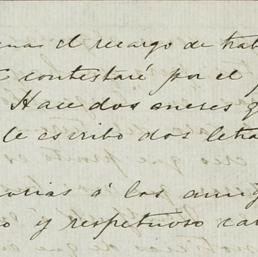 el recargo de trab
contestaré por el
Hace dos meses q
le escribo dos letra
orias á los amig
o y respetuoso car